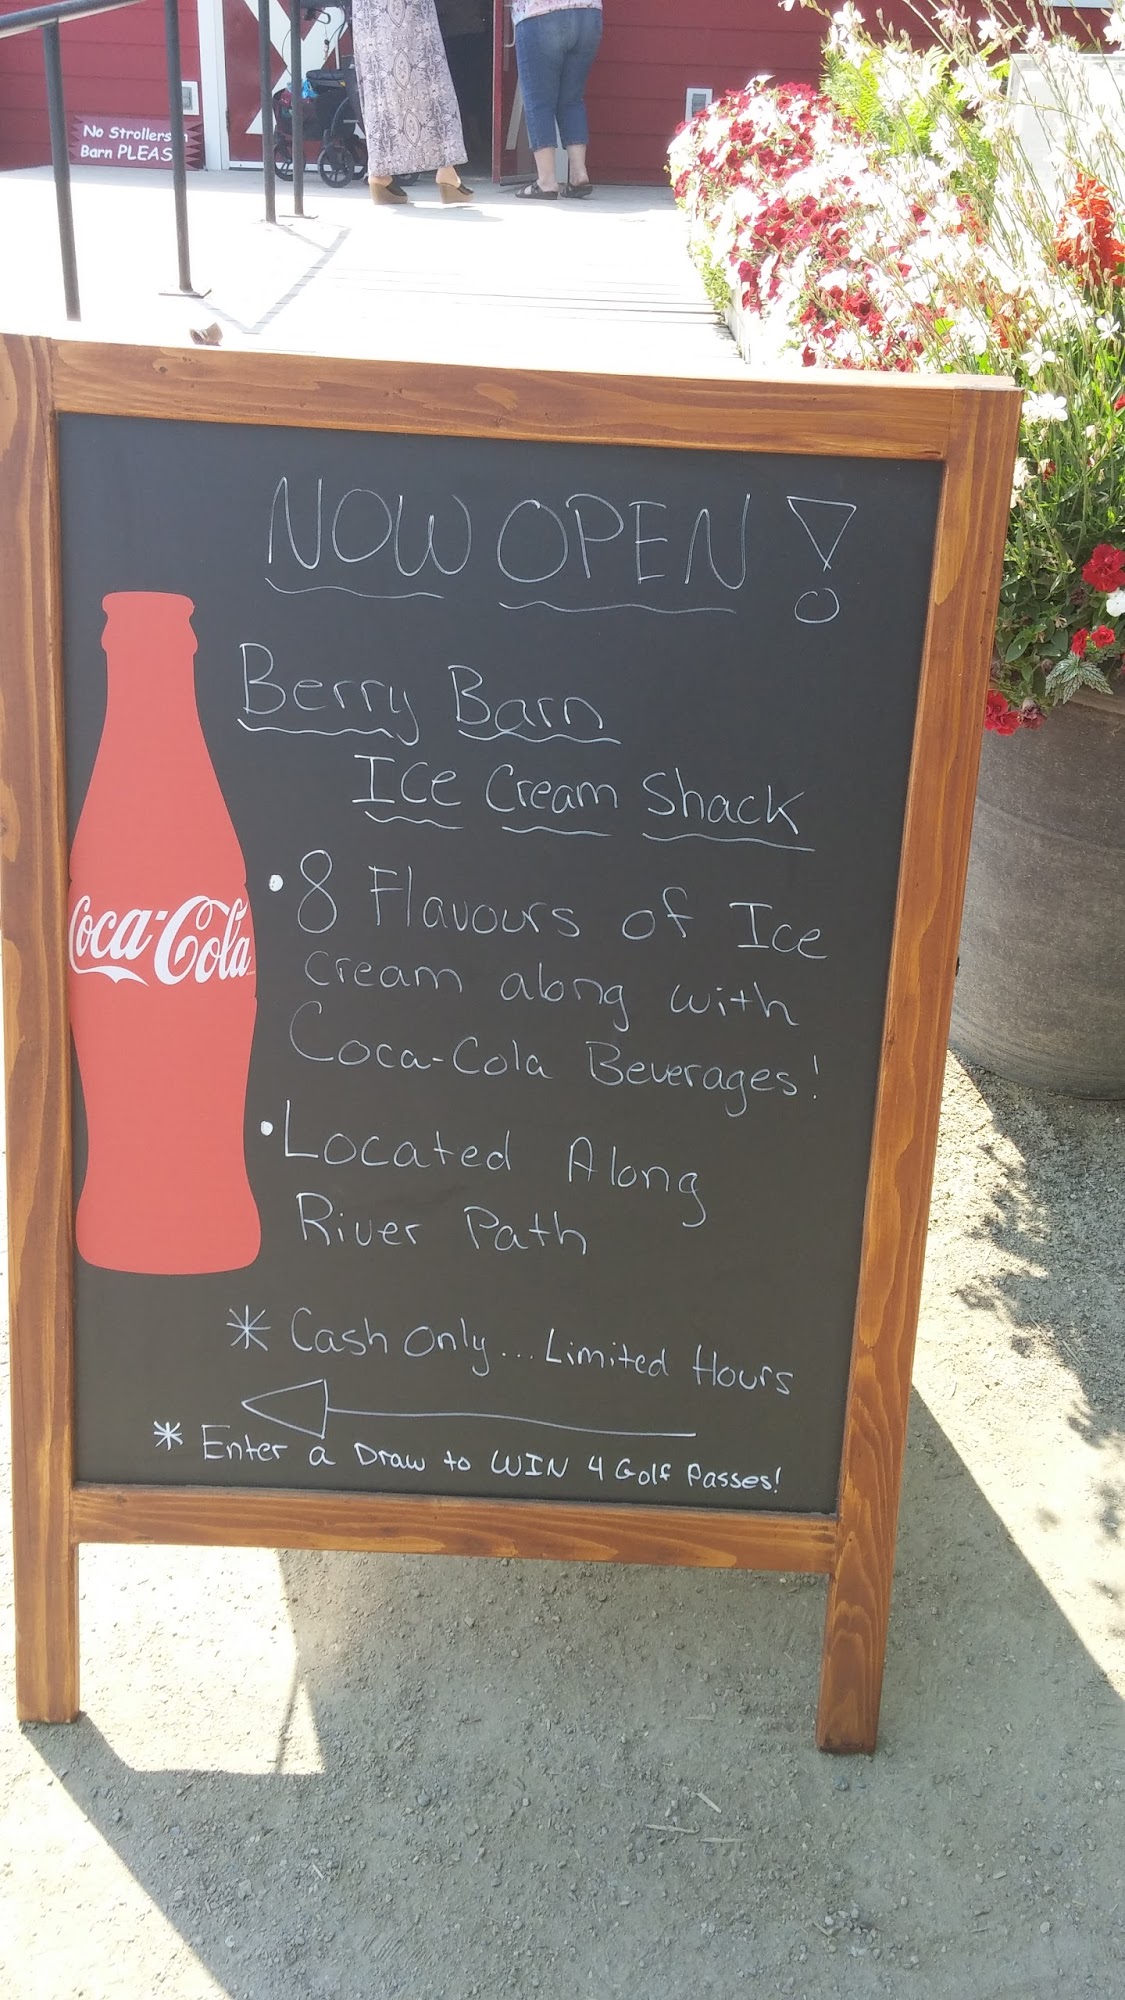 No Strollers in
Barn PLEAS
NOW OPEN!
Berry Barn
Ice Cream Shack
• 8 Flavours of Ice
cream along with
Coca-Cola Beverages!
• Located Along
River Path
* Cash Only... Limited Hours
* Enter a Draw to WIN 4 Golf Passes!
Coca-Cola